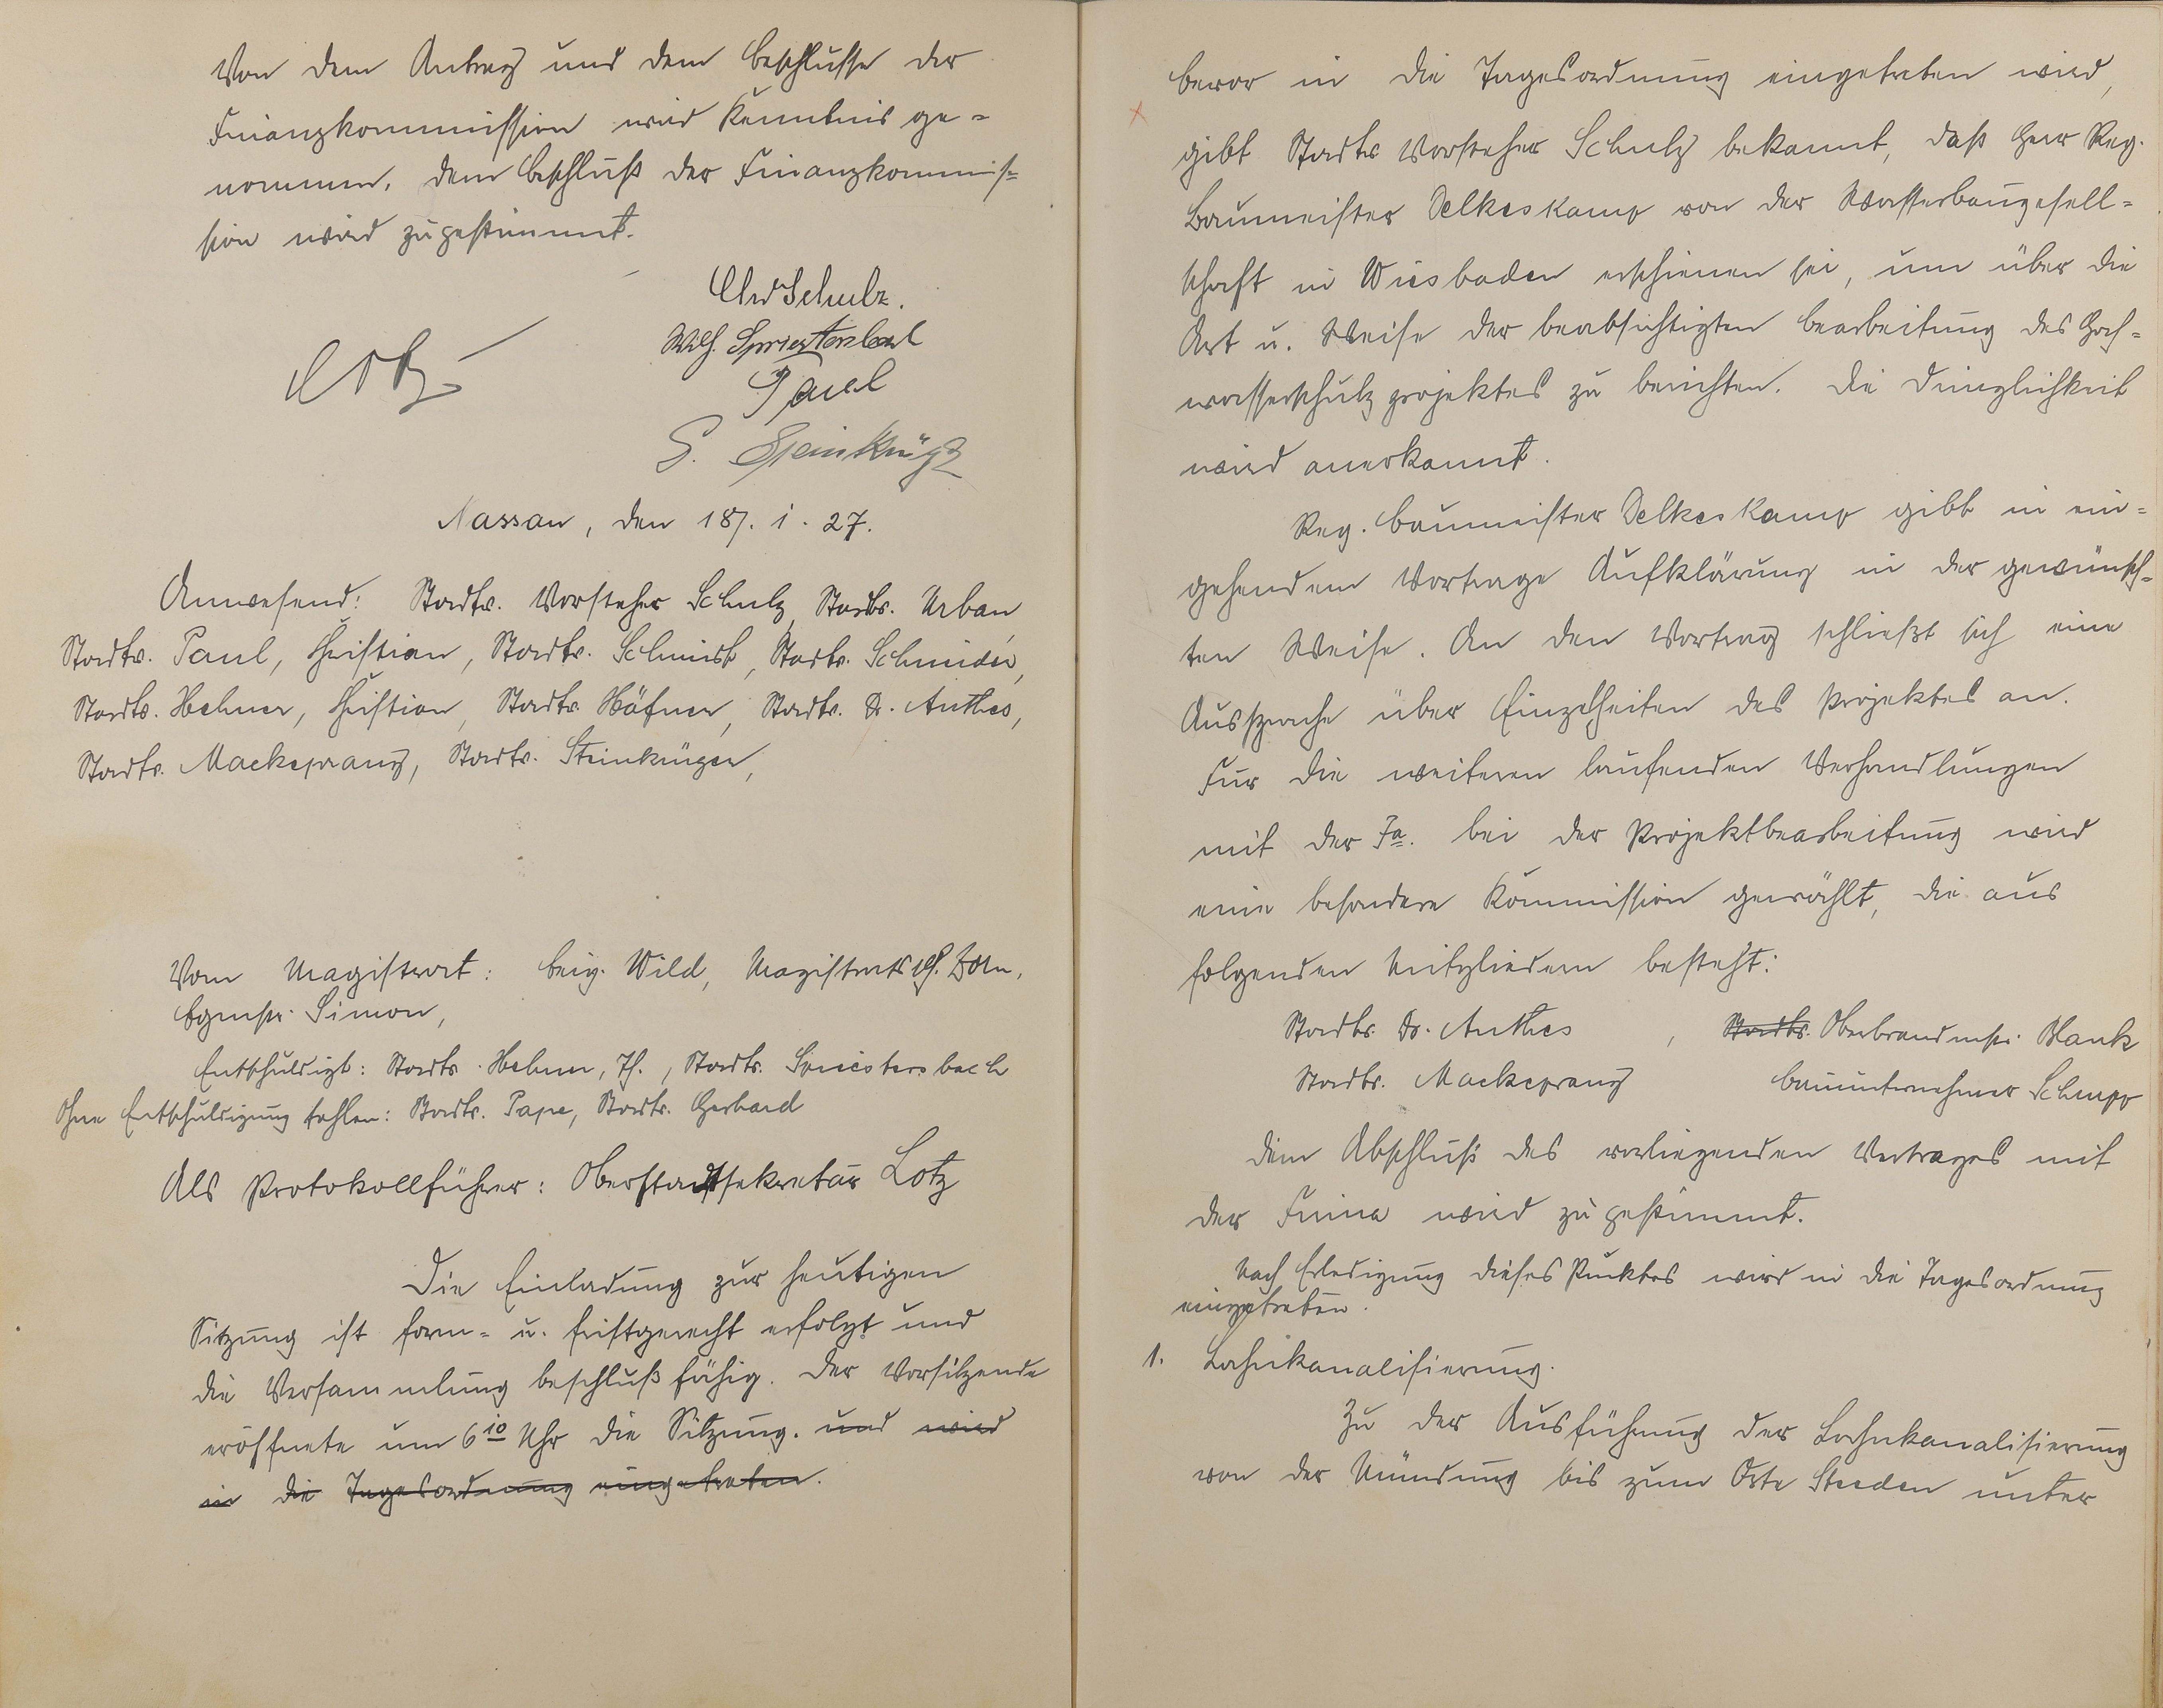 Von dem Antrag und dem Beschlusse der
Finanzkommission wird Kenntnis ge=
nommen. Dem Beschluß der Finanzkommis=
sion wird zugestimmt.
Chr Schulz.
Wilh. Spriestersbach
Lotz
Paul
S. Steinkrüger
Nassau, den 18. 1. 27.
Anwesend: Stadtv. Vorsteher Schulz, Stadtv. Urban
Stadtv. Paul, Christian, Stadtv. Schmidt, Stadtv. Schneider,
Stadtv. Hehner, Christian, Stadtv. Höfner, Stadtv. Dr. Anthes,
Stadtv. Mackeprang, Stadtv. Steinkrüger,
Vom Magistrat: Beig. Wild, Magistratssch. Zorn,
Bgmstr. Simon,
Entschuldigt: Stadtv. Hehner, Th., Stadtv. Spriestersbach
Ohne Entschuldigung fehlen: Stadtv. Pape, Stadtv. Gerhard
Als Protokollführer: Oberstadtsekretär Lotz
Die Einladung zur heutigen
Sitzung ist form= u. fristgerecht erfolgt und
die Versammlung beschlußfähig. Der Vorsitzende
eröffnete um 6 10 Uhr die Sitzung. und wird
in die Tagesordnung eingetreten.
Bevor in die Tagesordnung eingetreten wird,
gibt Stadtv. Vorsteher Schulz bekannt, daß Herr Reg.
Baumeister Delkeskamp von der Wasserbaugesell=
schaft in Wiesbaden erschienen sei, um über die
Art u. Weise der beabsichtigten Bearbeitung des Hoch=
wasserschutzprojektes zu berichten. Die Dringlichkeit
wird anerkannt.
Reg. Baumeister Delkeskamp gibt in ein=
gehendem Vortrage Aufklärung in der gewünsch=
ten Weise. An den Vortrag schließt sich eine
Aussprache über Einzelheiten des Projektes an.
Für die weiteren laufenden Verhandlungen
mit der Fa. bei der Projektbearbeitung wird
eine besondere Kommission gewählt, die aus
folgenden Mitgliedern besteht:
Stadtv. Dr. Anthes, Stadtv. Oberbrandmstr. Blank
Stadtv. Mackeprang Bauunternehmer Schupp
Dem Abschluß des vorliegenden Vertrages mit
der Firma wird zugestimmt.
Nach Erledigung dieses Punktes wird in die Tagesordnung
eingetreten.
1. Lahnkanalisierung.
Zu der Ausführung der Lahnkanalisierung
von der Mündung bis zum Orte Steeden unter